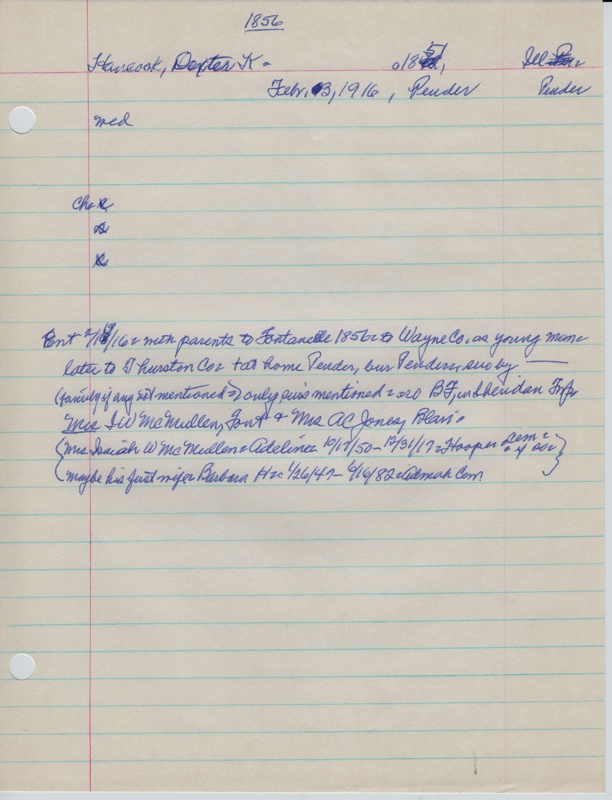 1856
Hancock, Dexter K - a1851, Ill
Febr. 3, 1916, Pender Pender
med
Ch
Ent 2/18/16 = with parents to Fontanelle 1856 = to Wayne Co. as young man =
later to Thurston Co = + at home Pender, bur Pender, sur by —
(family if any not mentioned =) only surs mentioned = bro B F, w Sheridan
Mrs I W McMullen, Font + Mrs A C Jones, Blair =
(Mrs. Isaiah W McMullen = Adeline = 10/17/50 - 12/31/17 = Hooper Cem =
(maybe his first wife = Barbara H = 1/26/47 - 6/16/82 = Admah Cem